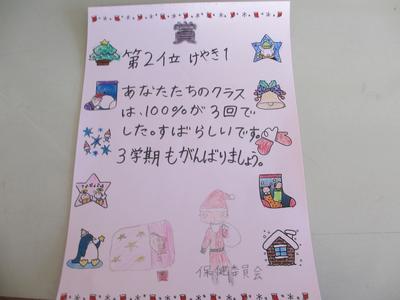 賞
第2位 けやき1
あなたたちのクラス
は、100%が3回で
した。すばらしいです。
3学期もがんばりましょう。
保健委員会